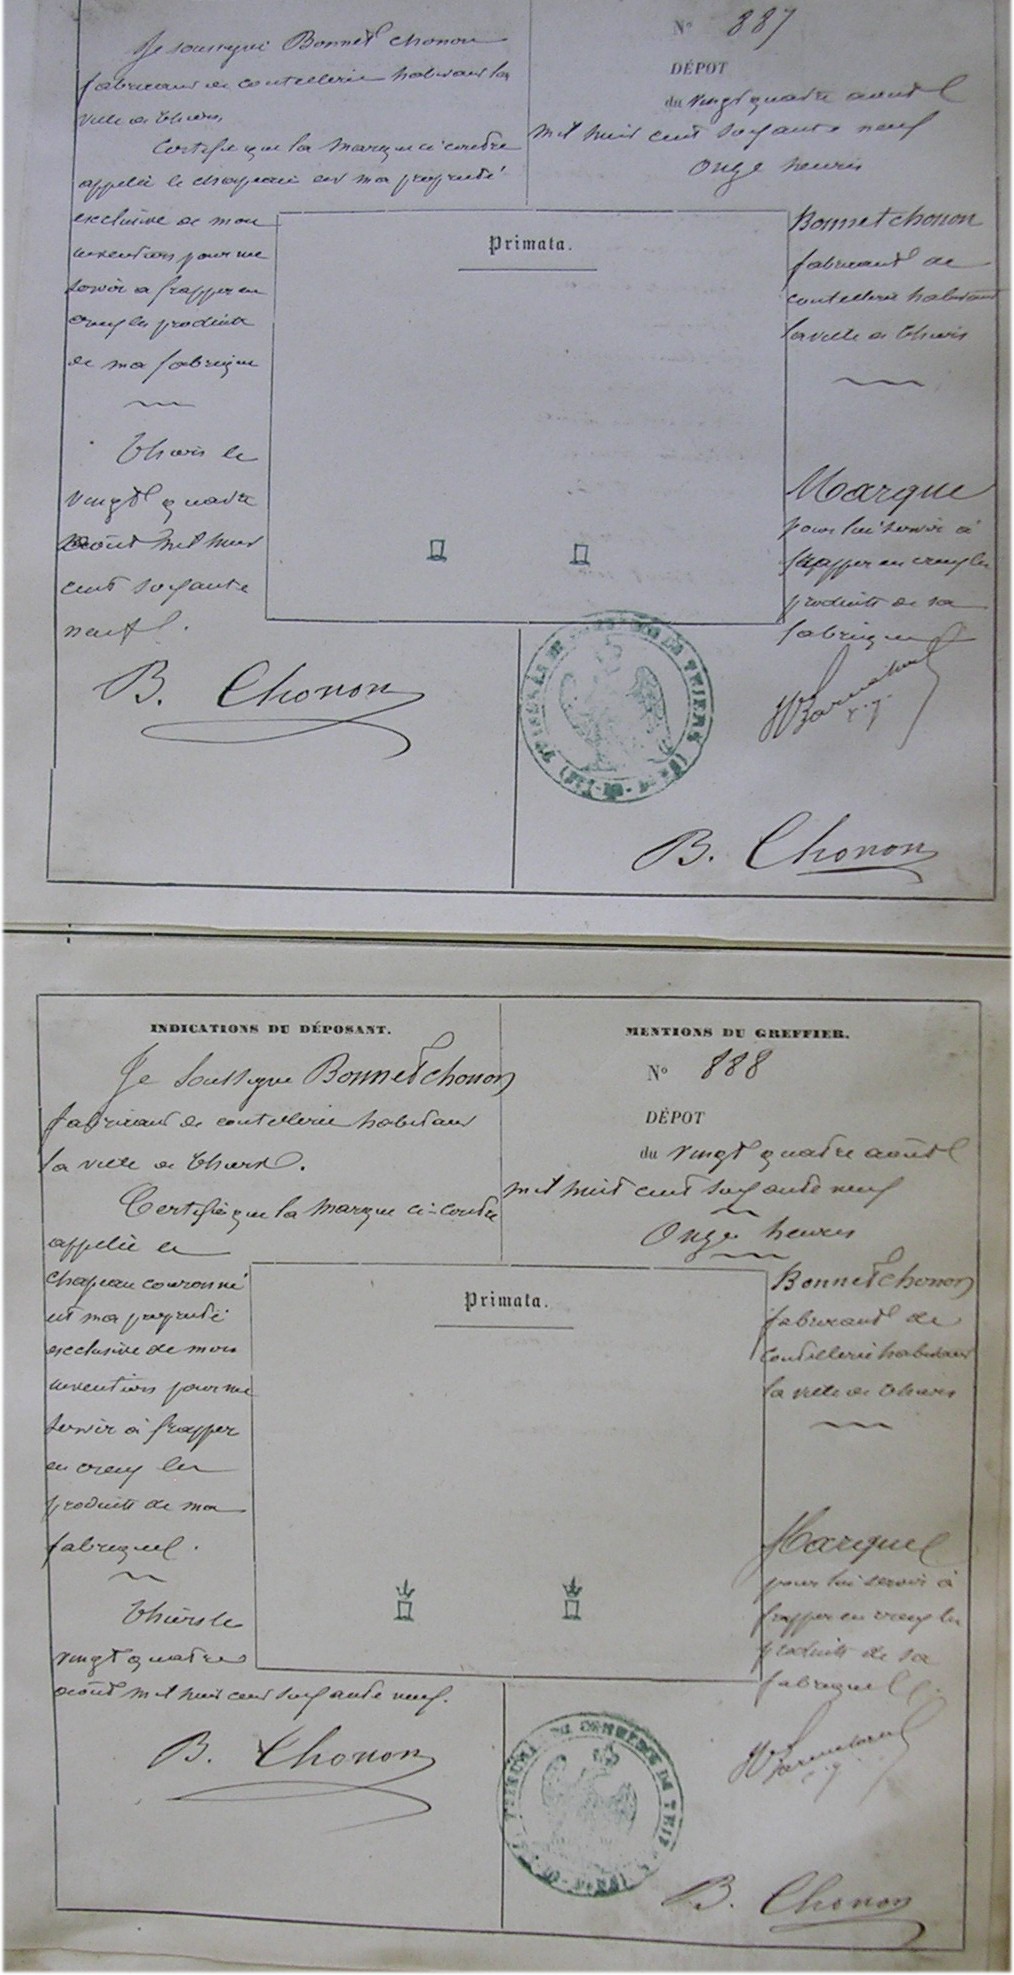 Je soussigné Bonnet Chonon
fabricant de coutellerie habitant la
ville de Thiers
Certifie que la Marque ci contre
appelée le chapeau est ma propriété
exclusive de mon
invention pour me
servir à frapper en
creux les produits
de ma fabrique
Thiers le
vingt quatre
août mil huit
cent soixante
neuf.
B. Chonon
N° 887
DÉPOT
du vingt quatre août
mil huit cent soixante neuf
onze heures
Primata.
Bonnet Chonon
fabricant de
coutellerie habitant
la ville de Thiers
Marque
pour lui servir à
frapper en creux les
produits de sa
fabrique
B. Chonon
INDICATIONS DU DÉPOSANT.
Je Soussigné Bonnet Chonon
fabricant de coutellerie habitant
la ville de Thiers.
Certifie que la Marque ci-contre
appelée le
chapeau couronné
est ma propriété
exclusive de mon
invention pour me
servir à frapper
en creux les
produits de ma
fabrique.
Thiers le
vingt quatre
août mil huit cent soixante neuf.
B. Chonon
MENTIONS DU GREFFIER.
N° 888
DÉPOT
du vingt quatre août
mil huit cent soixante neuf
Onze heures
Primata.
Bonnet Chonon
fabricant de
coutellerie habitant
la ville de Thiers
Marque
pour lui servir à
frapper en creux les
produits de sa
fabrique
TRIBUNAL DE COMMERCE DE THIERS
B. Chonon